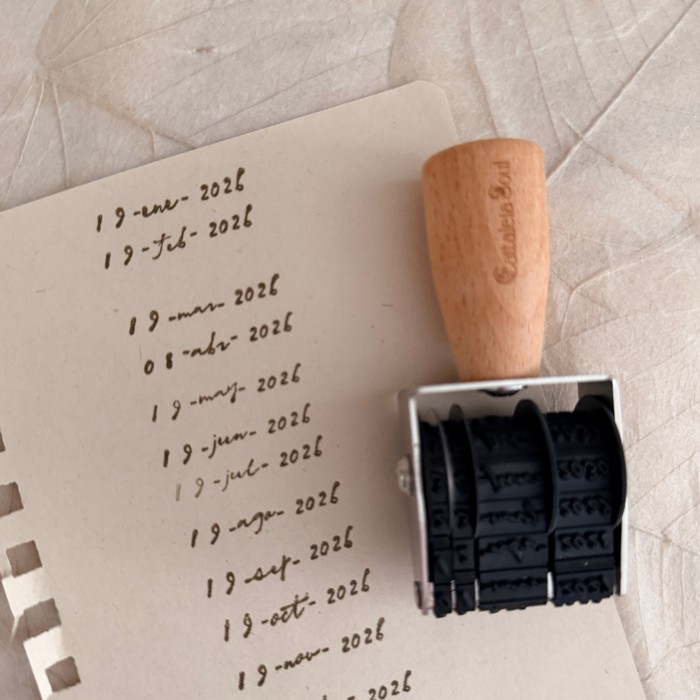 19-ene- 2026
19-feb- 2026
19-mar- 2026
08-abr- 2026
19-may- 2026
19-jun- 2026
19-jul- 2026
19-ago- 2026
19-sep- 2026
19-oct- 2026
19-nov- 2026
2026
Soul